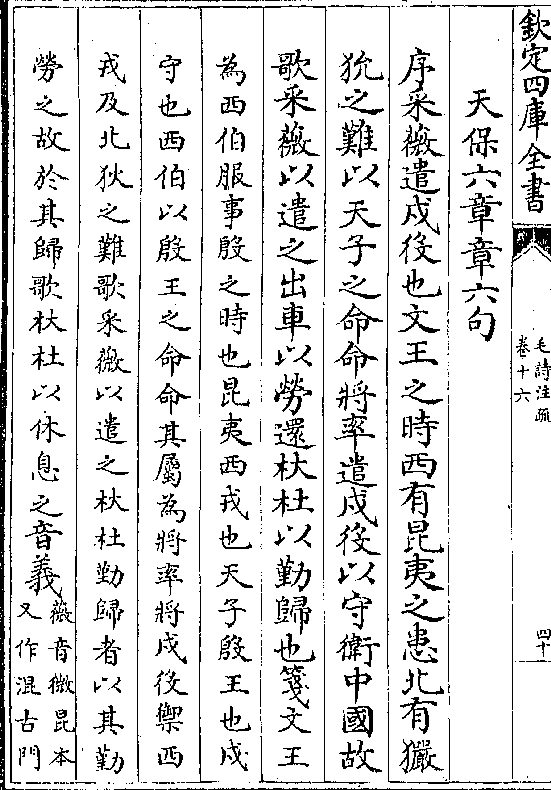 欽定四庫全書
毛詩注疏
卷十六
四十
天保六章章六句
序采薇遣戍役也文王之時西有昆夷之患北有玁
狁之難以天子之命命將率遣戍役以守衛中國故
歌采薇以遣之出車以勞還杕杜以勤歸也箋文王
為西伯服事殷之時也昆夷西戎也天子殷王也戍
守也西伯以殷王之命命其屬為將率將戍役禦西
戎及北狄之難歌采薇以遣之杕杜勤歸者以其勤
勞之故於其歸歌杕杜以休息之音義
薇音微昆本
又作混古門